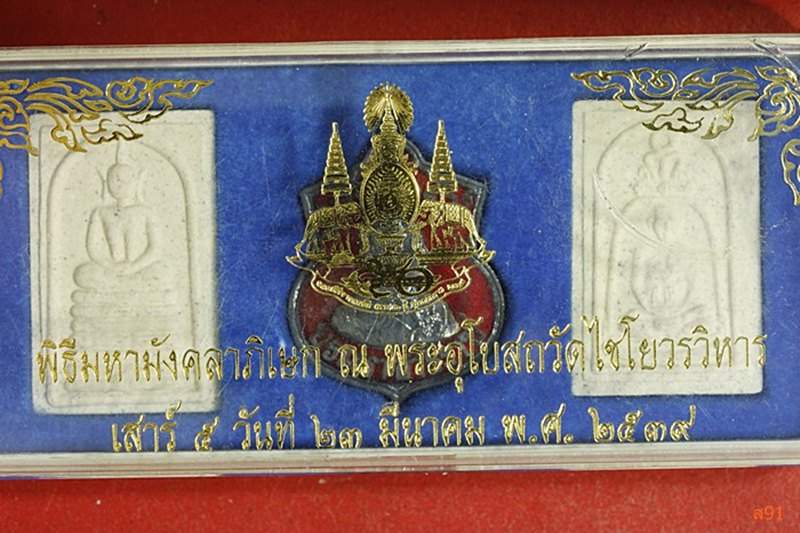 พิธีมหามังคลาภิเษก ณ พระอุโบสถวัดไชโยวรวิหาร
เสาร์ ๕ วันที่ ๒๓ มีนาคม พ.ศ. ๒๕๓๙
ส91